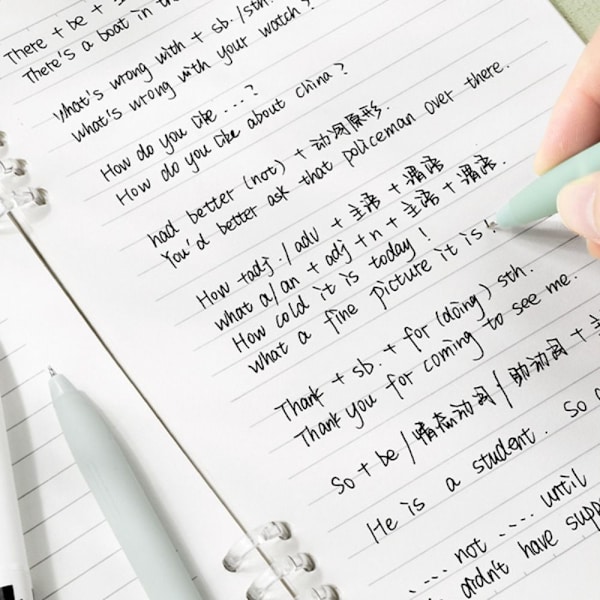 There + be +
There's a boat in th
What's wrong with + sb. /sth.
What's wrong with your watch?
How do you like ...?
How do you like about china?
had better (not) + 动词原形.
You'd better ask that policeman over there.
How +adj. / adv + 主语 + 谓语
what a/an + adj +n + 主语 + 谓语.
How cold it is today!
what a fine picture it is!
Thank + sb. + for (doing) sth.
Thank you for coming to see me.
So + be / 情态动词 / 助动词 + 主
He is a student. So
.... not .... until
didn't have supp